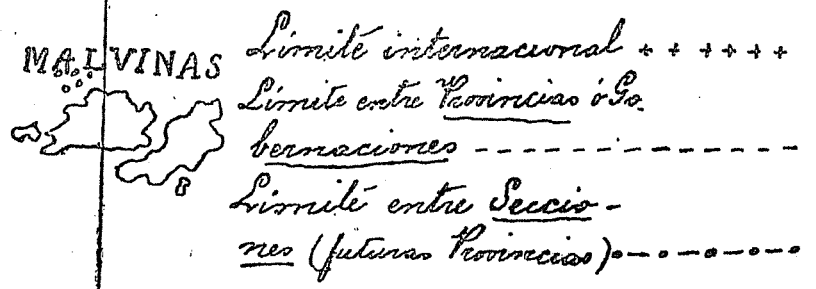 MALVINAS
Límite internacional + + + + + +
Límite entre Provincias ó Go-
bernaciones - - - - - - - - - - - - -
Límite entre Seccio-
nes (futuras Provincias) o-o-o-o-o